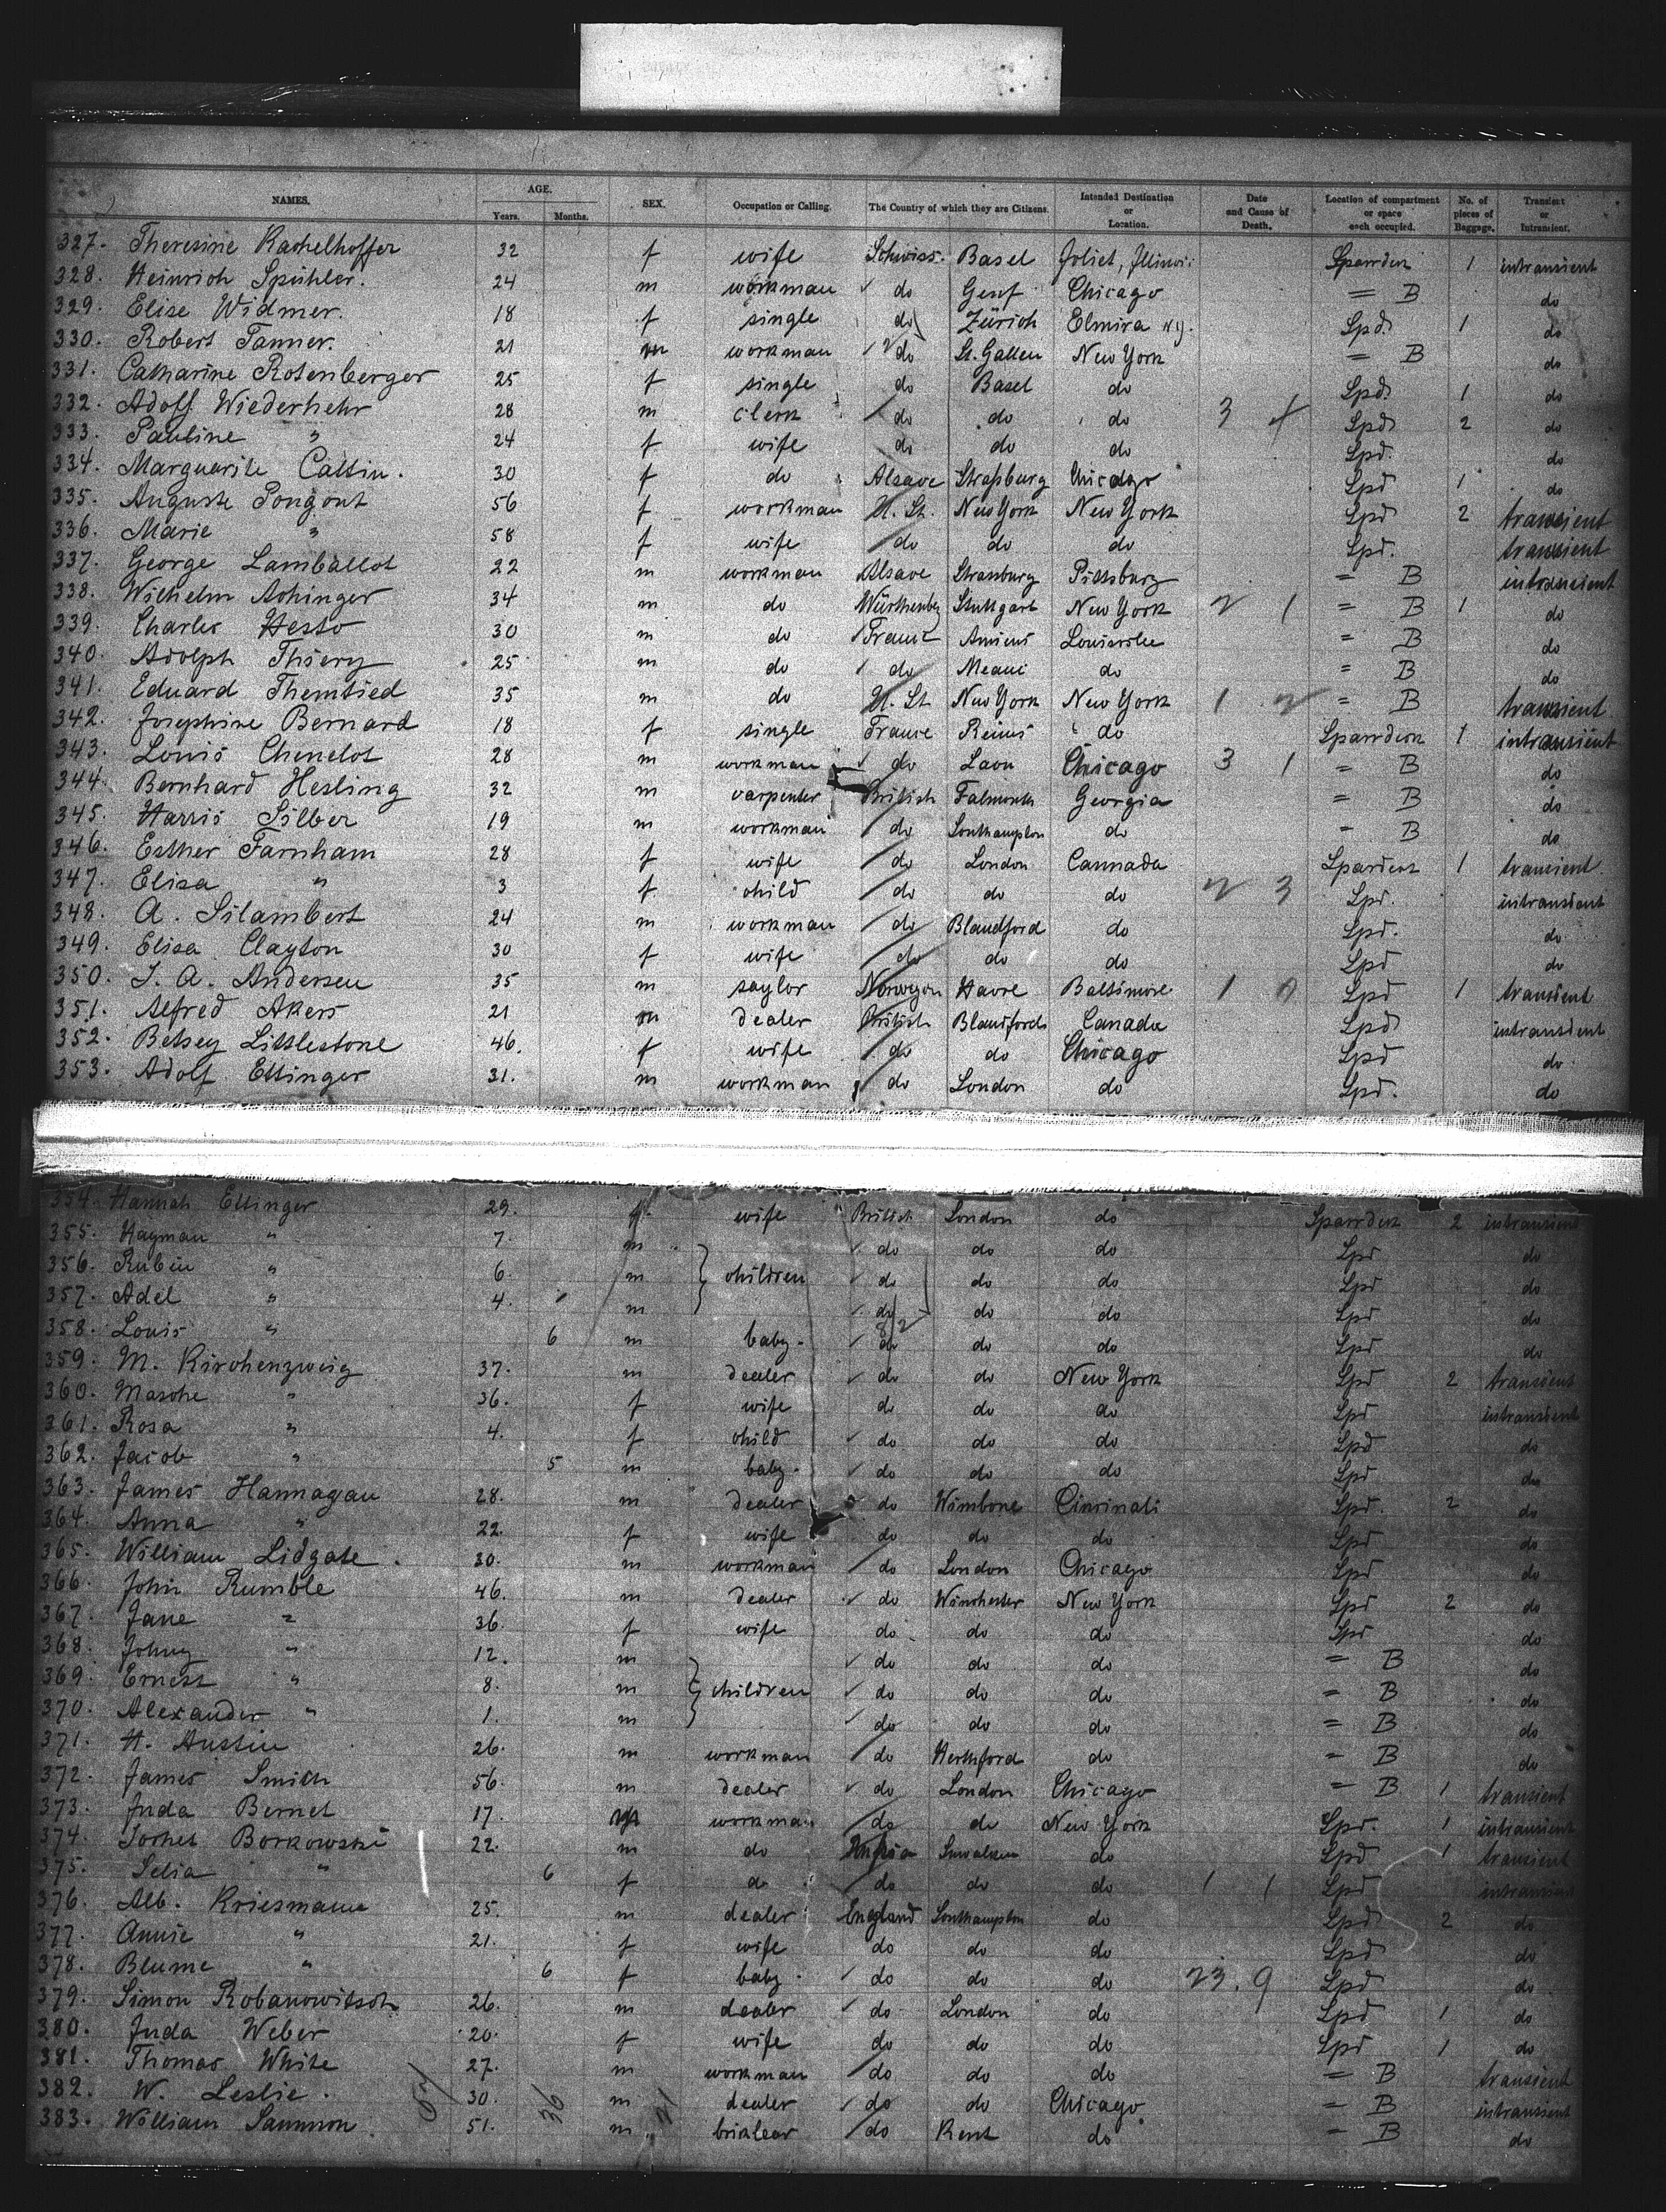 NAMES. AGE. Years. Months. SEX. Occupation or Calling. The Country of which they are Citizens. Intended Destination or Location. Date and Cause of Death. Location of compartment or space each occupied. No. of pieces of Baggage. Transient or Intransient.
327. Theresine Rachelhoffer 32 f wife Schweiz. Basel Joliet, Illinois Sparrdeck 1 intransient
328. Heinrich Spühler. 24 m workman do Genf Chicago = B do
329. Elise Widmer. 18 f single do Zürich Elmira N.Y. Spd. 1 do
330. Robert Tanner. 21 m workman do St. Gallen New York = B do
331. Catharine Rosenberger 25 f single do Basel do Spd. 1 do
332. Adolf Wiederkehr 28 m clerk do do do 3 Spd 2 do
333. Pauline " 24 f wife do do do Spd. do
334. Marguerite Cattin. 30 f do Alsace Strassburg Chicago Spd 1 do
335. Auguste Pongout 56 f workman U. St. New York New York Spd 2 transient
336. Marie " 58 f wife do do do Spd. transient
337. George Lamballot 22 m workman Alsace Strassburg Pittsburg = B intransient
338. Wilhelm Achinger 34 m do Württenbg Stuttgart New York 2 1 = B 1 do
339. Charles Hesto 30 m do France Amiens Louisville = B do
340. Adolph Thiery 25 m do do Meaux do = B do
341. Eduard Themtied 35 m do U. St New York New York 1 2 = B transient
342. Josephine Bernard 18 f single France Reims do Sparrdeck 1 intransient
343. Louis Chenelot 28 m workman do Laon Chicago 3 1 = B do
344. Bernhard Hesling 32 m carpenter British Falmouth Georgia = B do
345. Harris Silber 19 m workman do Southampton do = B do
346. Esther Farnham 28 f wife do London Cannada Sparrdeck 1 transient
347. Elisa " 3 f child do do do 2 3 Spd. intransient
348. A. Silambert 24 m workman do Blandford do Spd. do
349. Elisa Clayton 30 f wife do do do Spd do
350. J. A. Andersen 35 m saylor Norwegen Havre Baltimore 1 Spd 1 transient
351. Alfred Akers 21 m dealer British Blandford Canada Spd intransient
352. Betsey Littlestone 46. f wife do do Chicago Spd do
353. Adolf Ettinger 31. m workman do London do Spd. do
354. Hannah Ettinger 29. f. wife British London do Sparrdeck 2 intransient
355. Hayman " 7. m do do do Spd do
356. Rubin " 6. m children do do do Spd do
357. Adel " 4. m do do do Spd do
358. Louis " 6 m baby. do do do Spd do
359. M. Kirchenzweig 37. m dealer do do New York Spd 2 transient
360. Masche " 36. f wife do do do Spd intransient
361. Rosa " 4. f child do do do Spd do
362. Jacob " 5 m baby. do do do Spd do
363. James Hannagan 28. m dealer do Wimbone Cincinati Spd. 2 do
364. Anna " 22. f wife do do do Spd do
365. William Lidgate. 30. m workman do London Chicago Spd do
366. John Rumble 46. m dealer do Winchester New York Spd 2 do
367. Jane " 36. f wife do do do Spd do
368. Johny " 12. m do do do = B do
369. Ernest " 8. m children do do do = B do
370. Alexander " 1. m do do do = B do
371. H. Austin 26. m workman do Herthford do = B do
372. James Smith 56. m dealer do London Chicago = B 1 transient
373. Juda Bernet 17. m workman do do New York Spd. 1 intransient
374. Borkowski 22. m do Russia Suwalken do Spd 1 transient
375. Selia " 6 f do do do do 1 1 Spd intransient
376. Alb. Kriesmann 25. m dealer England Southampton do Spd 2 do
377. Annie " 21. f wife do do do Spd do
378. Blume " 6 f baby. do do do 23. 9 Spd do
379. Simon Robanowitsch 26. m dealer do London do Spd 1 do
380. Juda Weber 20. f wife do do do Spd 1 do
381. Thomas White 27. m workman do do do = B transient
382. W. Leslie. 30. m dealer do do Chicago = B intransient
383. William Sammon. 51. m. do Kent do = B do